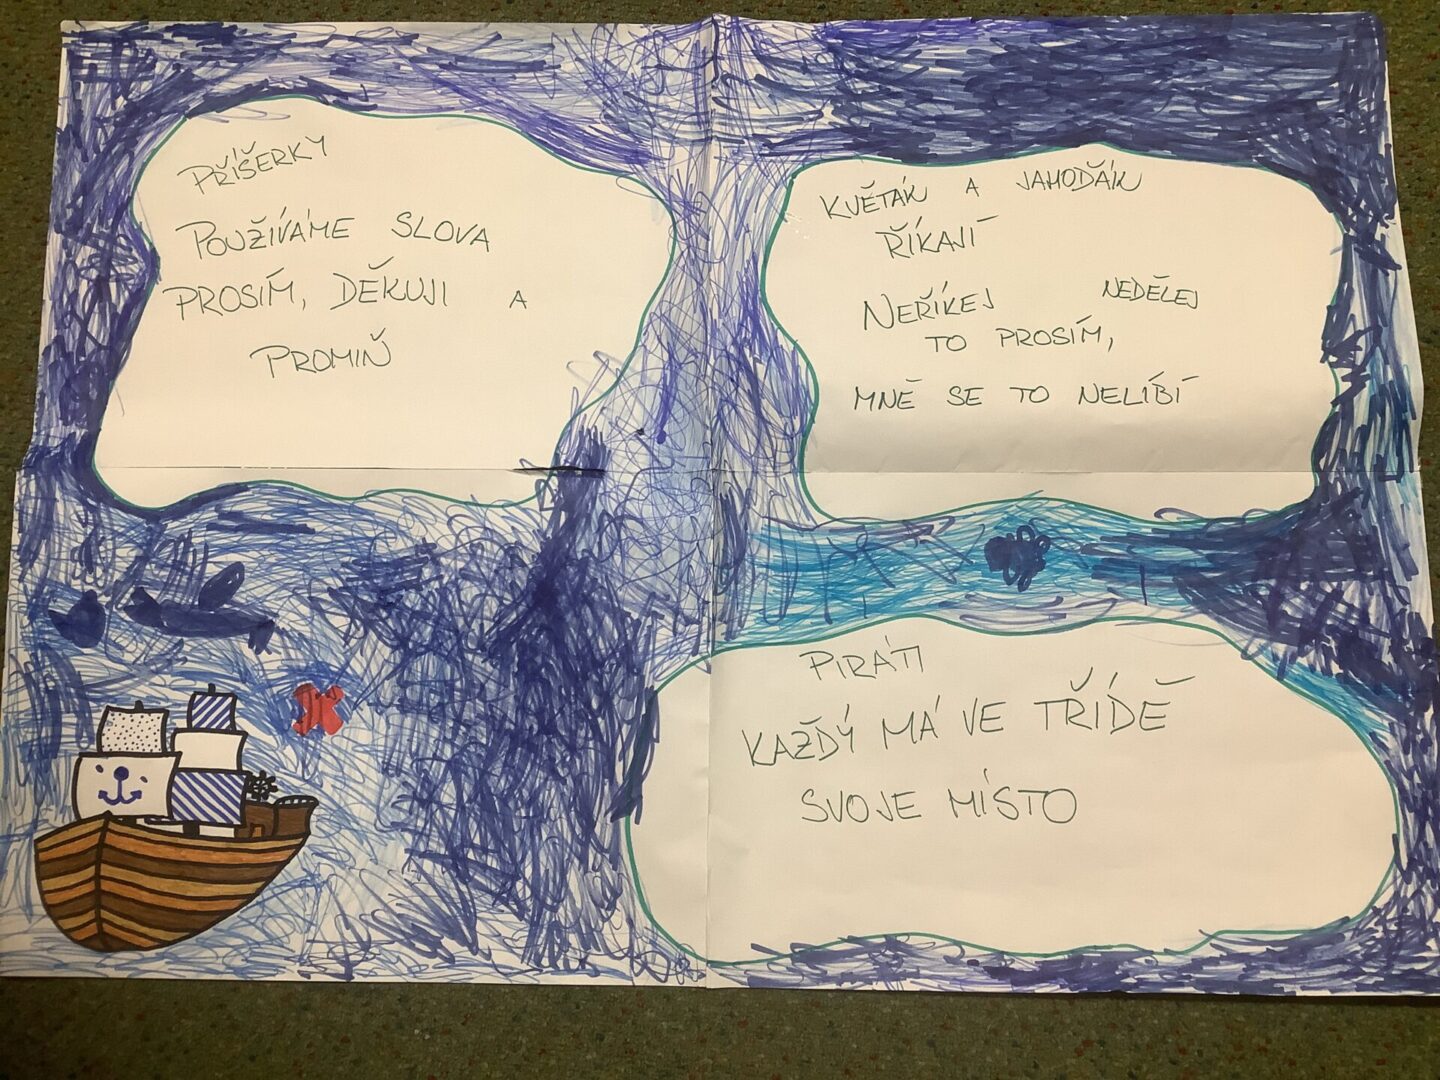 PŘÍŠERKY
POUŽÍVÁME SLOVA
PROSÍM, DĚKUJI A
PROMIŇ
KVĚTÁK A JAHOĎÁK
ŘÍKAJÍ
NEŘÍKEJ NEDĚLEJ
TO PROSÍM,
MNĚ SE TO NELÍBÍ
PIRÁTI
KAŽDÝ MÁ VE TŘÍDĚ
SVOJE MÍSTO